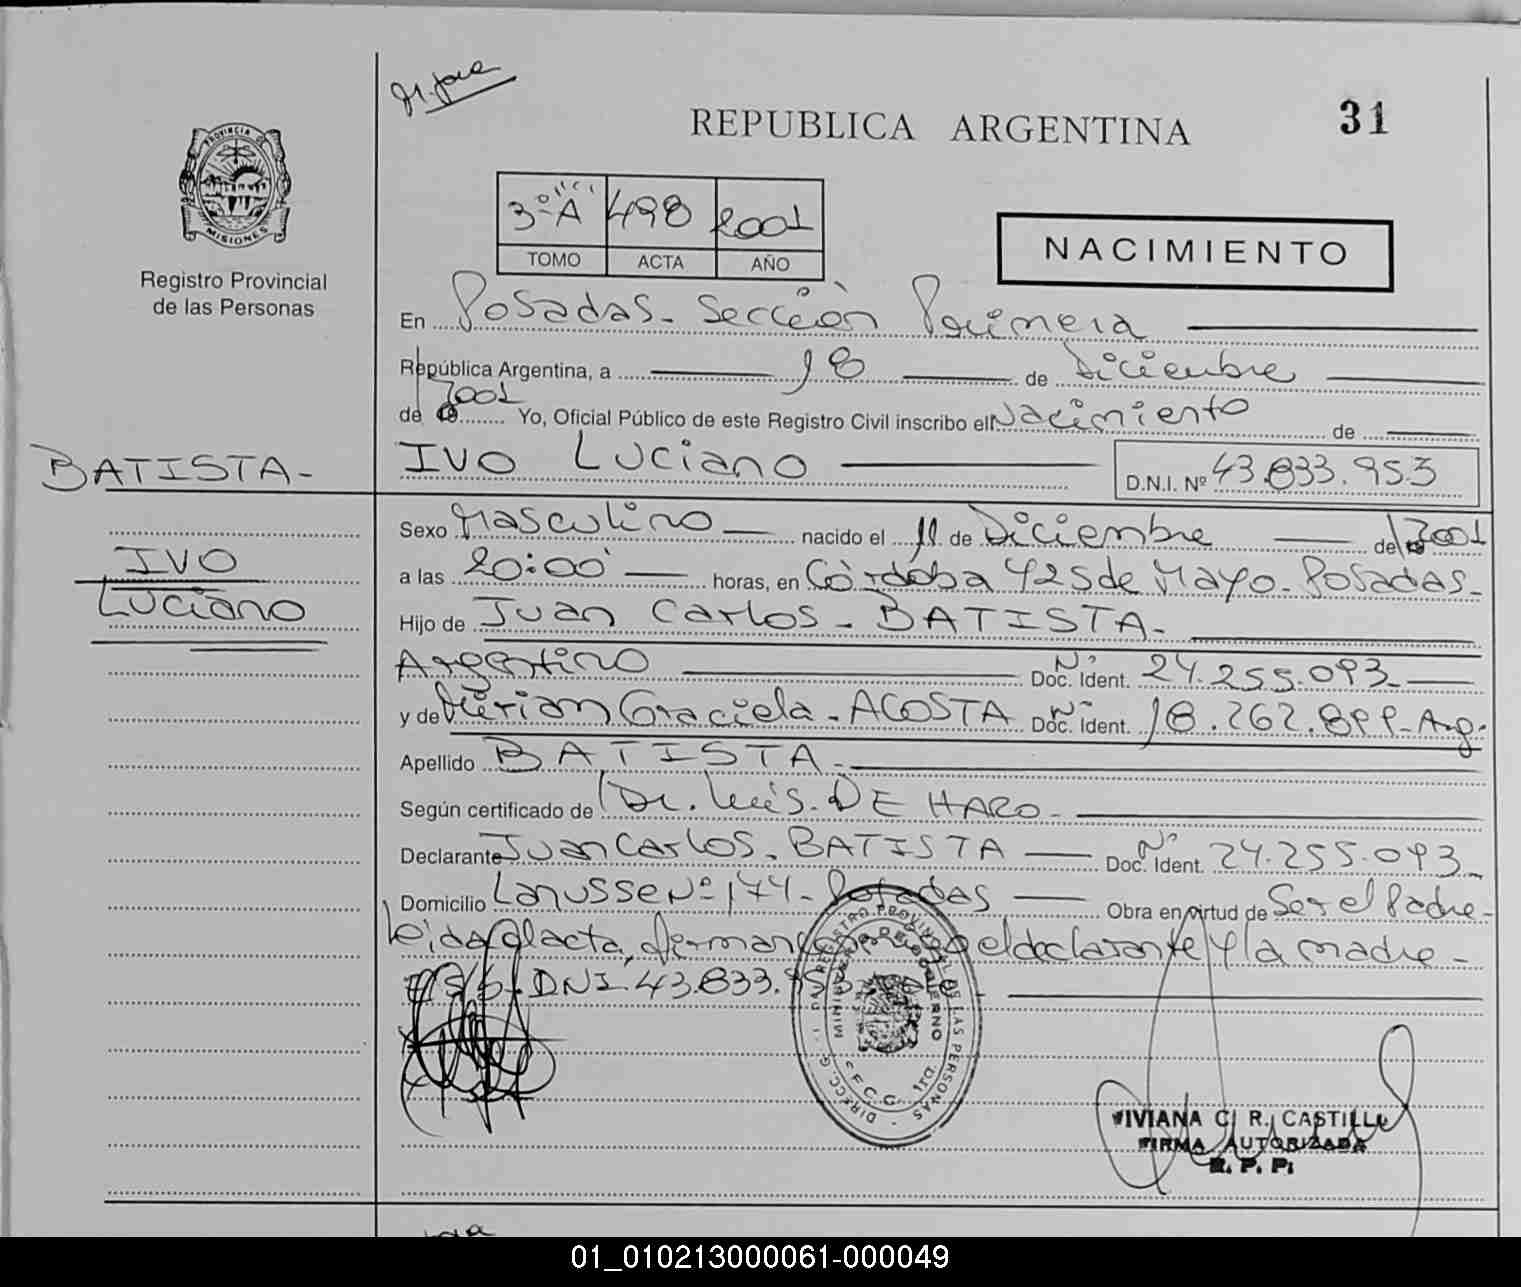 REPUBLICA ARGENTINA
31
PROVINCIA DE
MISIONES
Registro Provincial
de las Personas
3º A 498 2001
TOMO ACTA AÑO
NACIMIENTO
En Posadas - Sección Primera
República Argentina, a 18 de Diciembre
de 2001 Yo, Oficial Público de este Registro Civil inscribo el Nacimiento de
BATISTA -
IVO Luciano
D.N.I. Nº 43.833.953
Sexo Masculino nacido el 11 de Diciembre de 2001
IVO
Luciano
a las 20:00 horas, en Córdoba 425 de Mayo - Posadas -
Hijo de Juan Carlos - BATISTA -
Argentino Doc. Ident. Nº 24.255.093 -
y de Mirian Graciela - ACOSTA Doc. Ident. Nº 18.262.899 - Arg.
Apellido BATISTA -
Según certificado de Dr. Luis. DE HARO -
Declarante Juan Carlos - BATISTA Doc. Ident. Nº 24.255.093 -
Domicilio Larusse Nº 174 - Posadas Obra en virtud de Ser el Padre -
leida el acta, firman el declarante y la madre -
DNI 43.833.953
MINISTERIO DE GOBIERNO
VIVIANA C. R. CASTILLO
FIRMA AUTORIZADA
R. P. P.
01_010213000061-000049